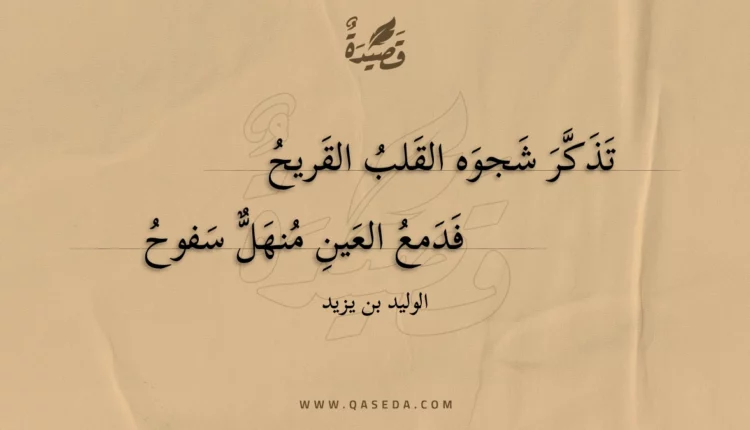 قَصِيْدَةٌ
تَذَكَّرَ شَجوَه القَلبُ القَريحُ
فَدَمعُ العَينِ مُنهَلٌّ سَفوحُ
الوليد بن يزيد
WWW.QASEDA.COM